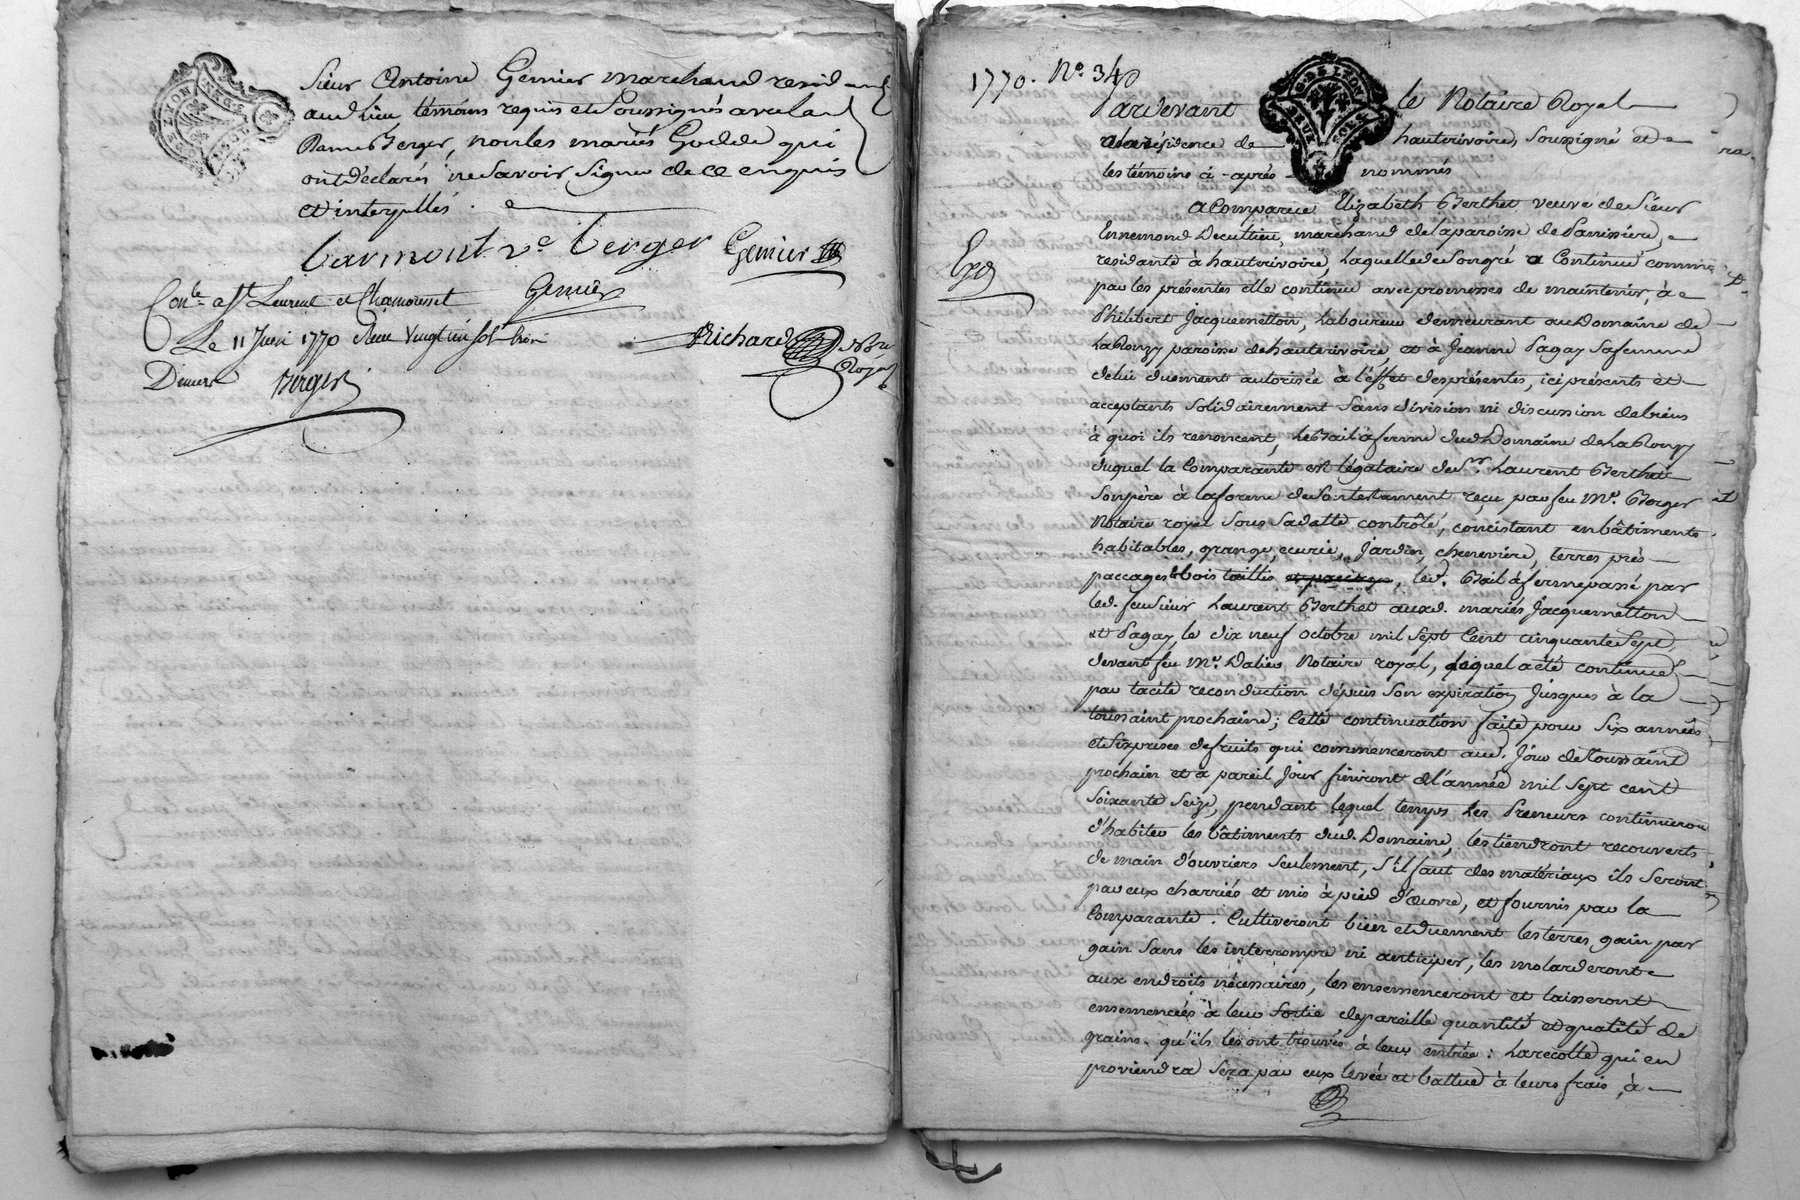 Sieur Antoine Gemier marchand residant
aud. lieu témoins requis et Soussignés avec lad.
Dame Berger, non les mariés Godde qui
ont déclarés ne Savoir Signer de ce enquis
et interpellés.
Carmont ve berger Gemier
Conle. a St Laurent et Chamousset Gemier
Le 11 Juin 1770 Reçu Vingt un sol
Richard Nore
Royal
Deniers Berger
1770. No. 34
Pardevant le Notaire Royal
a la résidence de hauterivoire, Soussigné et
les témoins ci-après nommés
a Comparue Elizabeth Berthet veuve de Sieur
Ennemond Decultieu, marchand de la paroisse de Panissiére,
residante à hauterivoire, Laquelle de Son gré a Continué comme
par les présentes elle continue avec promesses de maintenir, à
Philibert Jacquemetton, Laboureur demeurant au Domaine de
La Rouzy paroisse de hauterivoire, et à Jeanne Pagay Sa femme
de lui duement autorisée à l'effet des présentes, ici présents et
acceptants Solidairement Sans division ni discussion de biens
à quoi ils renoncent, le Bail à ferme dud. Domaine de La Rouzy
duquel la Comparante est légataire de Sr. Laurent Berthet
Son père à la forme de Son testament reçu par feu Me. Berger
Notaire royal Sous Sa datte contrôlé, concistant en bâtiments
habitables, grange, ecurie, Jardin, cheneviére, terres près
paccages & bois taillis et paccages, led. Bail à ferme passé par
led. feu Sieur Laurent Berthet auxd. mariés Jacquemetton
et Pagay, le dix neuf octobre mil Sept Cent cinquante Sept,
devant feu Me. Dalieu Notaire royal, lequel a été continué
par tacite reconduction depuis Son expiration Jusques à la
toussaint prochaine; Cette continuation faite pour Six années
et Six prises de fruits qui commenceront aud. Jour de toussaint
prochain et à pareil Jour finiront de l'année mil Sept cent
Soixante Seize, pendant lequel temps les Preneurs continueront
d'habiter les bâtiments dud. Domaine, les tiendront recouverts
de main d'ouvriers Seulement, S'il faut des matériaux ils Seront
par eux charriés et mis à pied d'œuvre, et fournis par la
Comparante. Cultiveront bien et duement les terres, gain par
gain Sans les interrompre ni anticiper, les molarderont
aux endroits nécessaires, les ensemenceront et laisseront
ensemencées à leur Sortie de pareille quantité et qualité de
grains qu'ils les ont trouvés à leur entrée: La récolte qui en
proviendra Sera par eux levée et battue à leurs frais, à